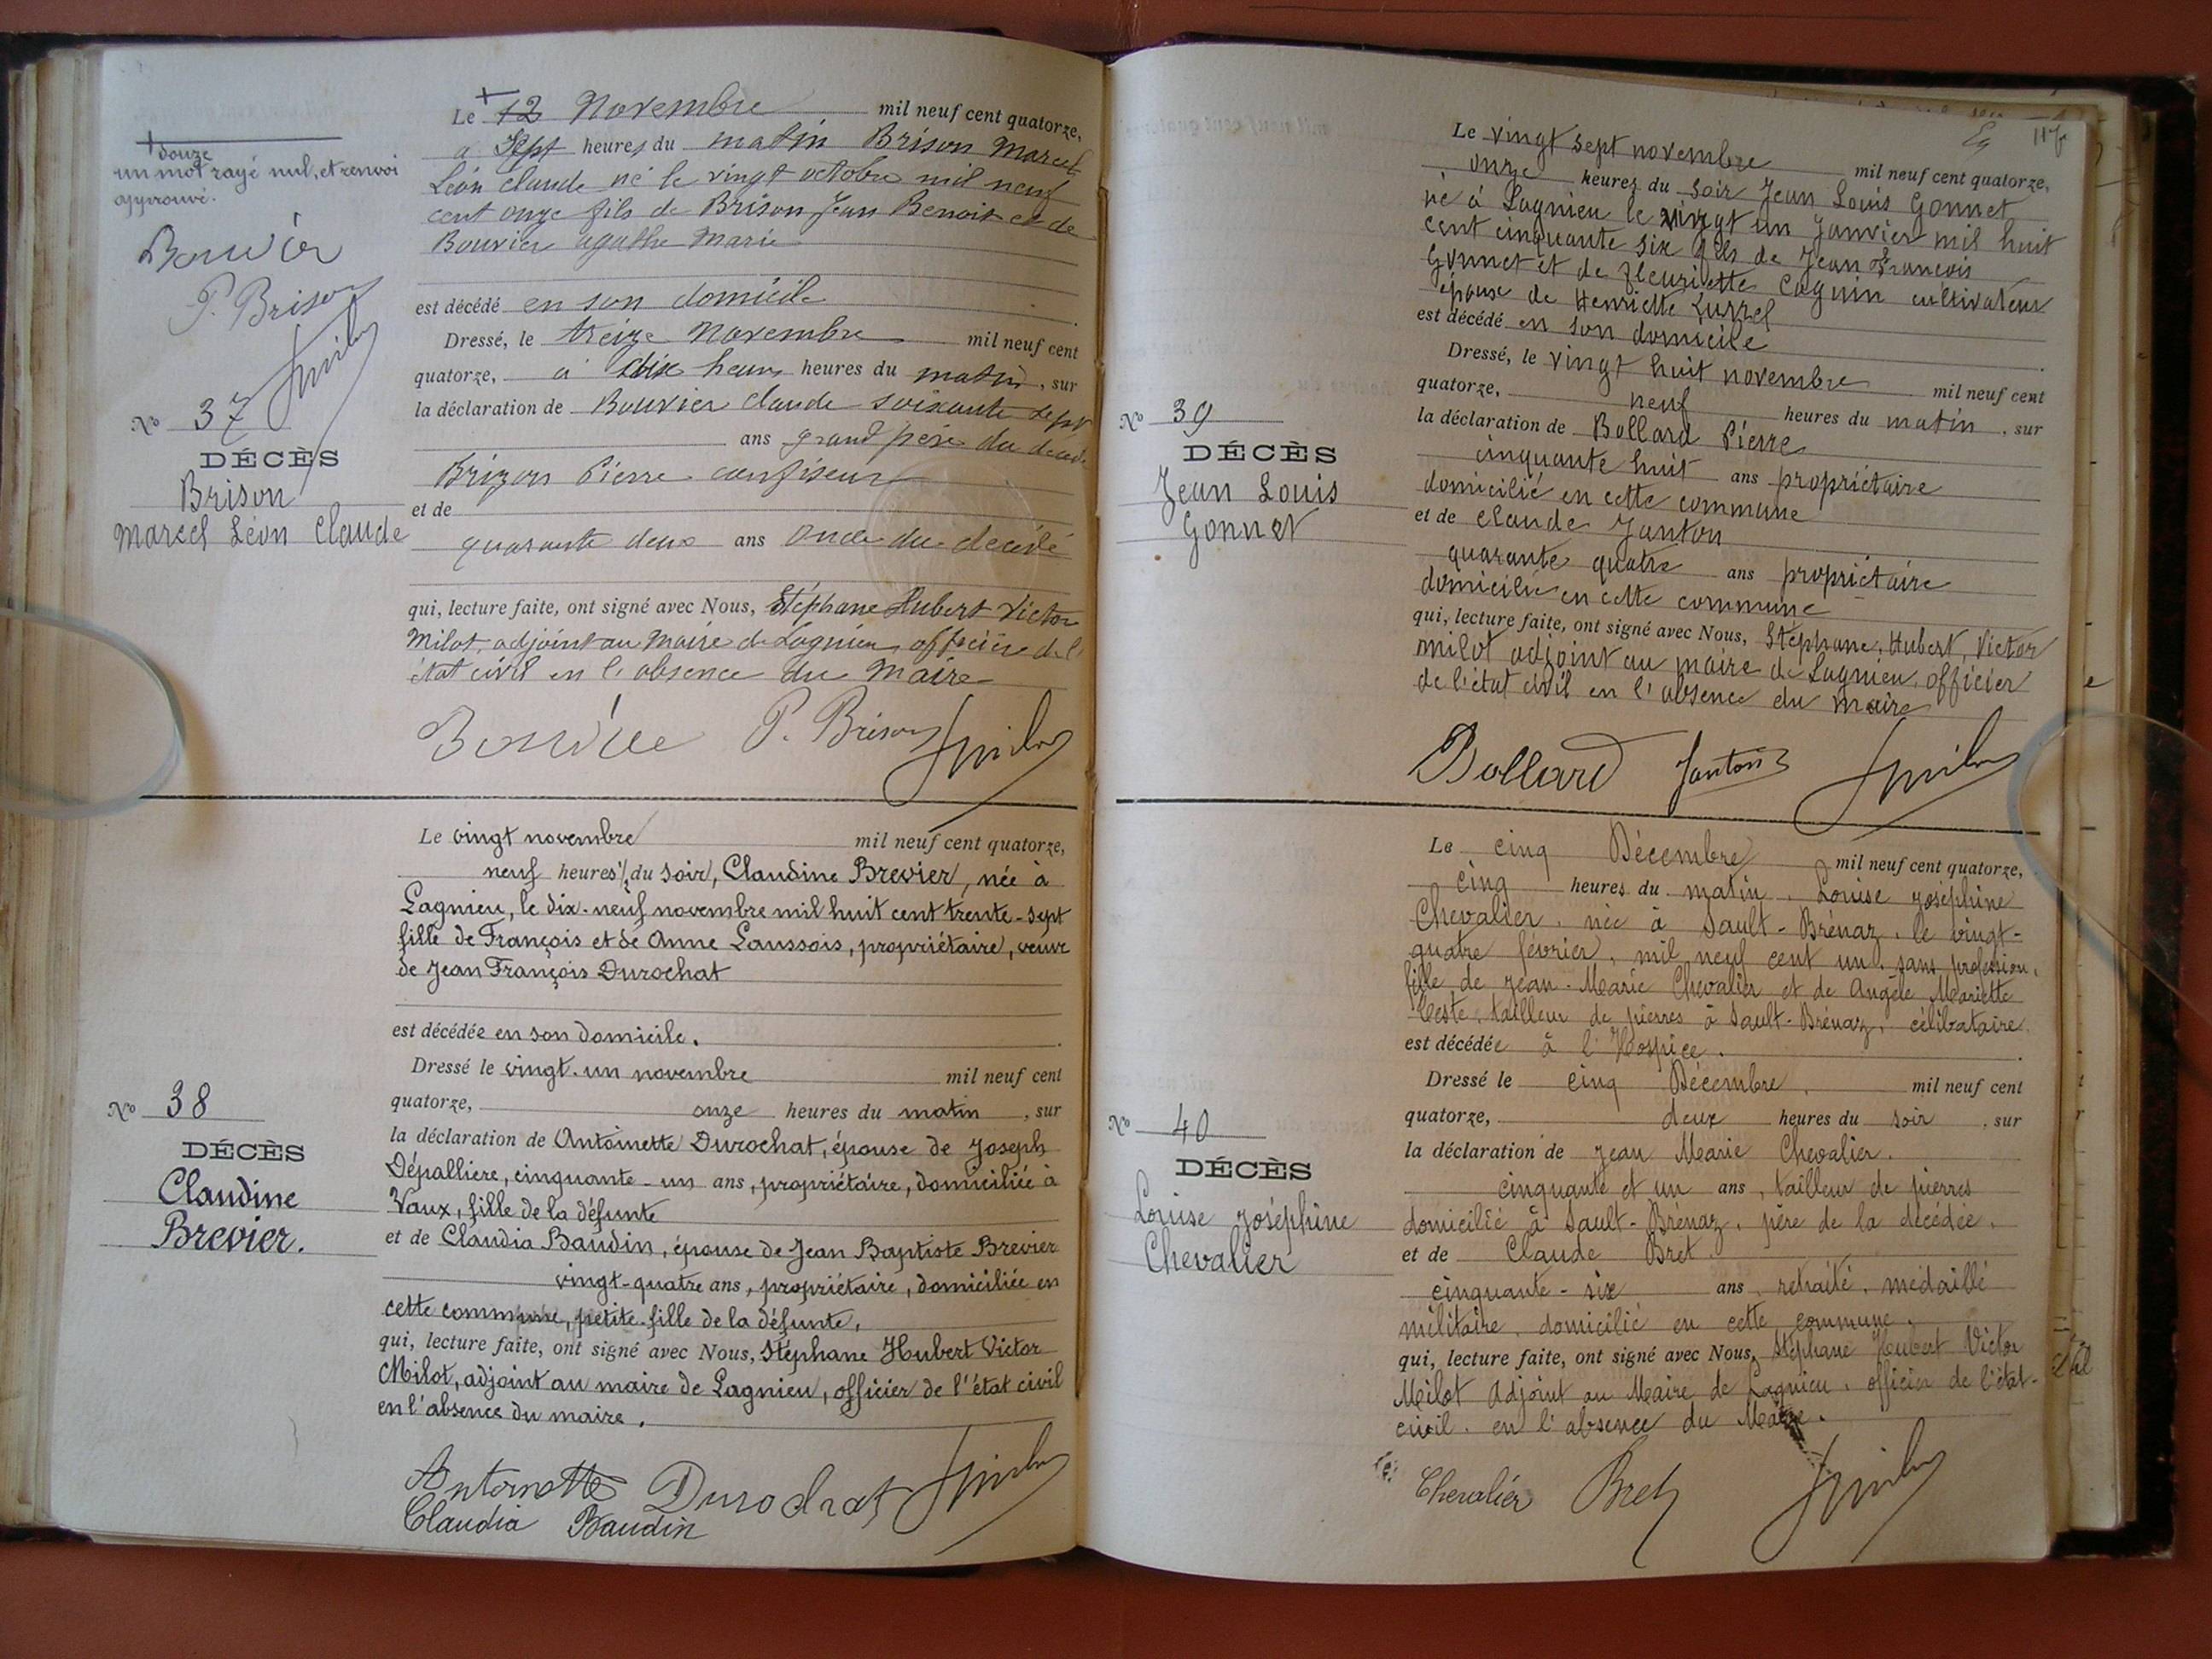 Le 12 Novembre mil neuf cent quatorze,
à Sept heures du matin Brison Marcel
Léon Claude né le vingt octobre mil neuf
cent onze fils de Brison Jean Benoit et de
Bouvier agathe Marie
est décédé en son domicile
Dressé, le treize Novembre mil neuf cent
quatorze, à dix heures heures du matin, sur
la déclaration de Bouvier Claude soixante sept
ans grand père du
Brizon Pierre confiseur
et de
quarante deux ans Oncle du décédé
qui, lecture faite, ont signé avec Nous, Stéphane Hubert Victor
Milot, adjoint au Maire de Lagnieu, officier de l'
état civil en l'absence du Maire
P. Brison
+ douze
un mot rayé nul, et renvoi
approuvé.
Bouvier
P. Brison
No 37
DÉCÈS
Brison
Marcel Léon Claude
Le vingt novembre mil neuf cent quatorze,
neuf heures ½ du soir, Claudine Brevier, née à
Lagnieu, le dix-neuf novembre mil huit cent trente-sept
fille de François et de Anne Laussois, propriétaire, veuve
de Jean François Durochat
est décédée en son domicile.
Dressé le vingt-un novembre mil neuf cent
quatorze, onze heures du matin, sur
la déclaration de Antoinette Durochat, épouse de Joseph
Dépalliere, cinquante-un ans, propriétaire, domiciliée à
Vaux, fille de la défunte
et de Claudia Baudin, épouse de Jean Baptiste Brevier
vingt-quatre ans, propriétaire, domiciliée en
cette commune, petite-fille de la défunte,
qui, lecture faite, ont signé avec Nous, Stéphane Hubert Victor
Milot, adjoint au maire de Lagnieu, officier de l'état civil
en l'absence du maire.
Antoinette Durochat
Claudia Baudin
No 38
DÉCÈS
Claudine
Brevier.
Le vingt sept novembre mil neuf cent quatorze,
onze heures du soir Jean Louis Gonnet
né à Lagnieu le vingt un Janvier mil huit
cent cinquante six fils de Jean François
Gonnet et de Fleuriette Coquin cultivateur
épouse de Henriette
est décédé en son domicile
Dressé, le vingt huit novembre mil neuf cent
quatorze, neuf heures du matin, sur
la déclaration de Bollard Pierre
cinquante huit ans propriétaire
domicilié en cette commune
et de Claude Janton
quarante quatre ans propriétaire
domicilié en cette commune
qui, lecture faite, ont signé avec Nous, Stéphane, Hubert, Victor
milot adjoint au maire de Lagnieu, officier
de l'état civil en l'absence du maire
Bollard Janton
No 39
DÉCÈS
Jean Louis
Gonnet
Le cinq Décembre mil neuf cent quatorze,
cinq heures du matin, Louise Joséphine
Chevalier, née à Sault-Brénaz, le vingt-
quatre février, mil neuf cent un, sans profession,
fille de Jean-Marie Chevalier et de Angèle Mariette
Ceste, tailleur de pierres à Sault-Brénaz, célibataire
est décédée à l'Hospice.
Dressé le cinq Décembre, mil neuf cent
quatorze, deux heures du soir, sur
la déclaration de Jean Marie Chevalier.
cinquante et un ans, tailleur de pierres
domicilié à Sault-Brénaz, père de la décédée.
et de Claude Bret
cinquante-six ans, retraité, médaillé
militaire, domicilié en cette commune,
qui, lecture faite, ont signé avec Nous, Stéphane Hubert Victor
Milot Adjoint au Maire de Lagnieu, officier de l'état-
civil, en l'absence du Maire.
Chevalier Bret
No 40
DÉCÈS
Louise Joséphine
Chevalier